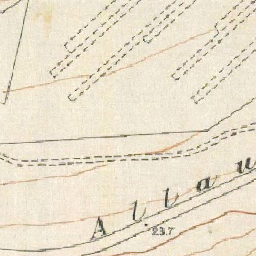 Allau
23.7